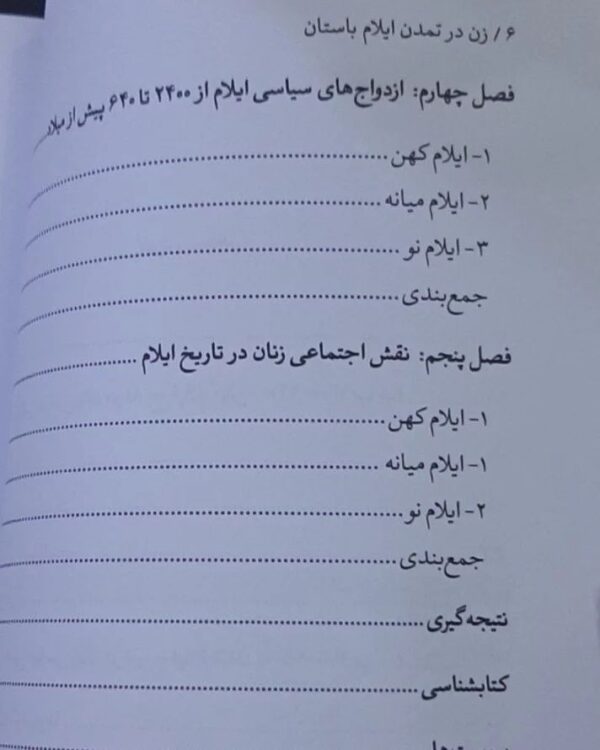 ۶ / زن در تمدن ایلام باستان
فصل چهارم: ازدواج‌های سیاسی ایلام از ۲۴۰۰ تا ۶۴۰ پیش از میلاد
۱- ایلام کهن
۲- ایلام میانه
۳- ایلام نو
جمع‌بندی
فصل پنجم: نقش اجتماعی زنان در تاریخ ایلام
۱- ایلام کهن
۱- ایلام میانه
۲- ایلام نو
جمع‌بندی
نتیجه‌گیری
کتابشناسی